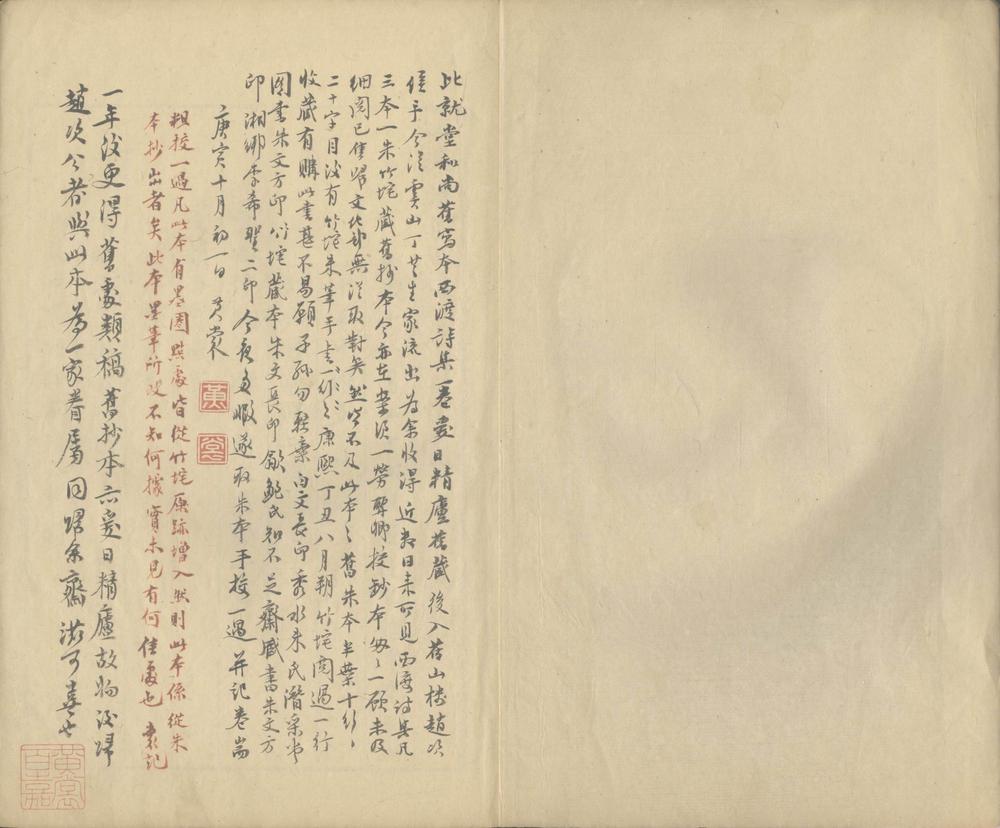 此就堂和尚舊寫本西渡詩集一卷愛日精廬舊藏後入舊山樓趙次
侯手今從虞山丁芝生家流出為余收得近數日來所見西渡詩集凡
三本一朱竹垞藏舊抄本今亦在案頭一勞鞏卿校鈔本匆匆一顧未及
細閱已售歸文化部無從取對矣然皆不及此本之舊朱本半葉十行行
二十字目後有竹垞朱筆手書一行行云康熙丁丑八月朔竹垞閱過一行
收藏有購此書甚不易願子孫勿輕棄白文長印秀水朱氏潛采堂
圖書朱文方印竹垞藏本朱文長印歙鮑氏知不足齋藏書朱文方
印湘鄉李希聖二印今夜多暇遂取朱本手校一過并記卷耑
庚寅十月初一日 黃裳
黃
裳
粗校一過凡此本有墨圈點處皆從竹垞原跡增入然則此本係從朱
本抄出者矣此本墨筆所改不知何據實未見有何佳處也 裳記
一年後更得舊處類稿舊抄本亦愛日精廬故物後歸
趙次公者與此本為一家眷屬同歸余齋滋可喜也
黃裳
百嘉